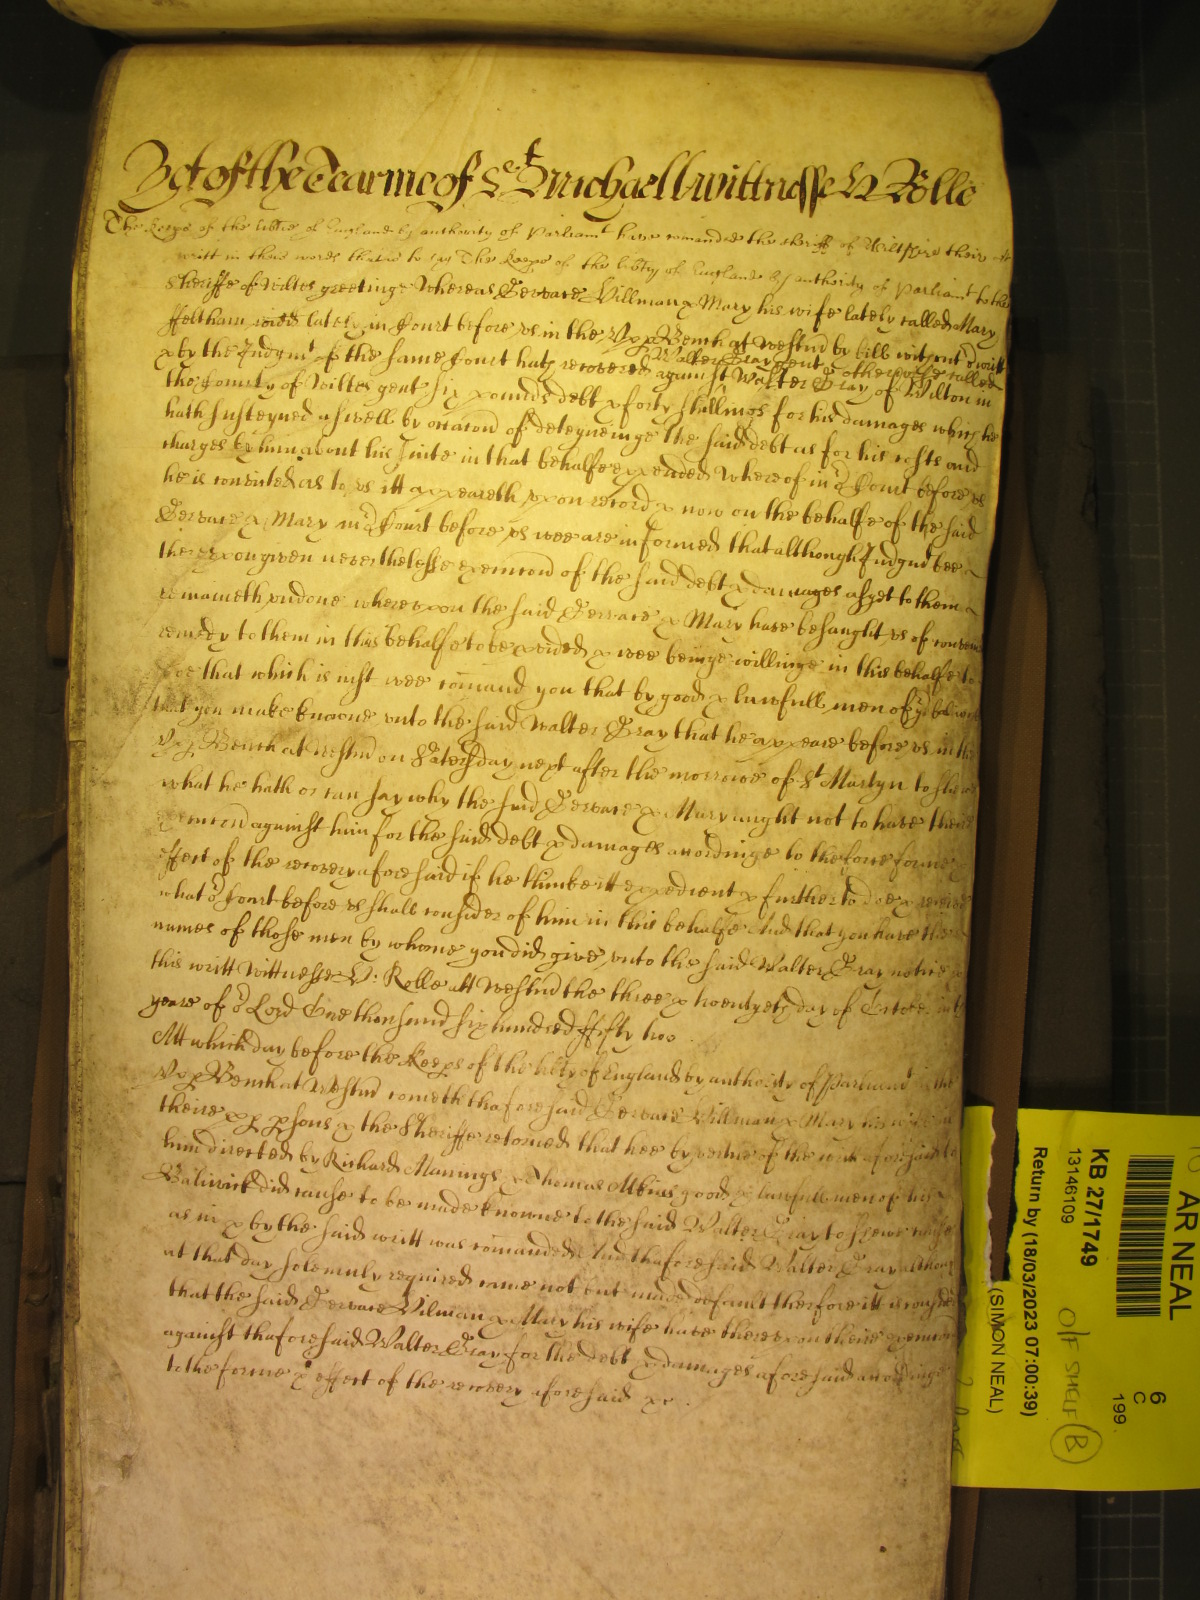 Yet of the Tearme of Sct Michaell wittnesse H Rolle
The Keeps of the libtie of England by authority of Parliamt have comanded the sheriff of Wiltshire their
writt in these words that is to say The Keeps of the libty of England by authority of Parliamt to the
Sheriffe of Wiltes greetinge Whereas Gervace Villman & Mary his wife lately called Mary
ffeltham lately in Court before us in the Upp Bench at Westmr by bill without writt
& by the Judgmt of the same Court hath recovered against Walter Gray gent otherwise called Walter Gray of Wilton in
the County of Wiltes gent six pounds debt & forty shillings for his damages which he
hath susteyned aswell by occacon of deteyneinge the said debt as for his costs and
charges by him about his suite in that behalfe expended Whereof in or Court before us
he is convicted as to us itt appeareth upon record & now on the behalfe of the said
Gervace & Mary in or Court before us wee are informed that although Judgmt bee
thereupon given neverthelesse execucon of the said debt & damages as yet to them
remaineth undone whereupon the said Gervace & Mary have besaught us of
remedy to them in this behalfe to be pvided & wee beinge willinge in this behalfe to
doe that which is iust wee comand you that by good & lawfull men of yr
that you make knowne unto the said Walter Gray that he appeare before us in the
Upp Bench at Westmr on Satersday next after the morrowe of St Martyn to shewe
what he hath or can say why the said Gervace & Mary ought not to have their
execucon against him for the said debt & damages accordinge to the forme &
effect of the recovery aforesaid if he thinke itt expedient & further to doe & receive
what or Court before us shall consider of him in this behalfe And that you have there
names of those men by whome you did give unto the said Walter Gray notice &
this writt Wittnesse H. Rolle att Westmr the three & twentyeth day of in the
yeare of or Lord One thousand six hundred ffifty two .
Att which day before the Keeps of the libty of England by authority of Parliamt in the
Upp Bench at Westmr cometh thaforesaid Gervace Villman & Mary his wife in
theire pp psons & the Sheriffe retorned that hee by vertue of the writt aforesaid to
him directed by Richard Mannings & Thomas good & lawfull men of his
Baliwick did cause to be made knowne to the said Walter Gray to shewe
as in & by the said writt was comanded And thaforesaid Walter Gray although
at that day solemnly required came not but made default therfore itt is
that the said Gervace Vilman & Mary his wife have thereupon theire execucon
against thaforesaid Walter Gray for the debt & damages aforesaid accordinge
to the forme & effect of the recovery aforesaid &c .
AR NEAL
KB 27/1749
13146109
Return by (18/03/2023 07:00:39)
(SIMON NEAL)
O/F SHELF B
6
C
199